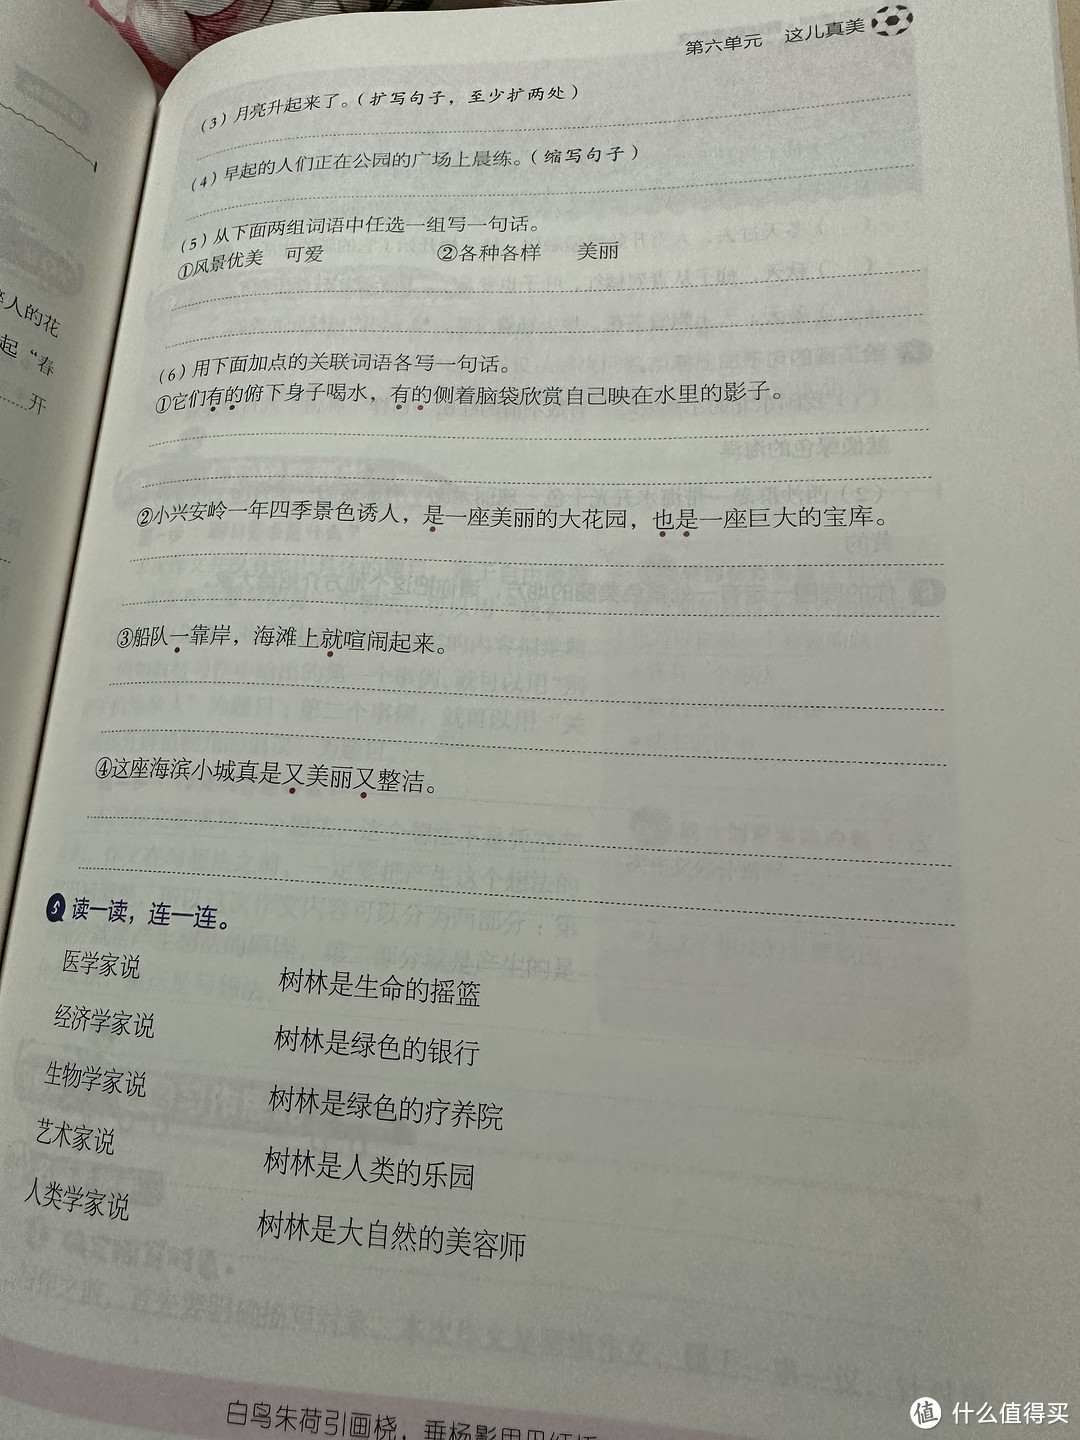 第六单元 这儿真美
（3）月亮升起来了。（扩写句子，至少扩两处）
（4）早起的人们正在公园的广场上晨练。（缩写句子）
（5）从下面两组词语中任选一组写一句话。
①风景优美 可爱 ②各种各样 美丽
（6）用下面加点的关联词语各写一句话。
①它们有的俯下身子喝水，有的侧着脑袋欣赏自己映在水里的影子。
②小兴安岭一年四季景色诱人，是一座美丽的大花园，也是一座巨大的宝库。
③船队一靠岸，海滩上就喧闹起来。
④这座海滨小城真是又美丽又整洁。
5 读一读，连一连。
医学家说 树林是生命的摇篮
经济学家说 树林是绿色的银行
生物学家说 树林是绿色的疗养院
艺术家说 树林是人类的乐园
人类学家说 树林是大自然的美容师
人的花
起“春
开
白鸟朱荷引画桡，垂杨影里见
值 什么值得买